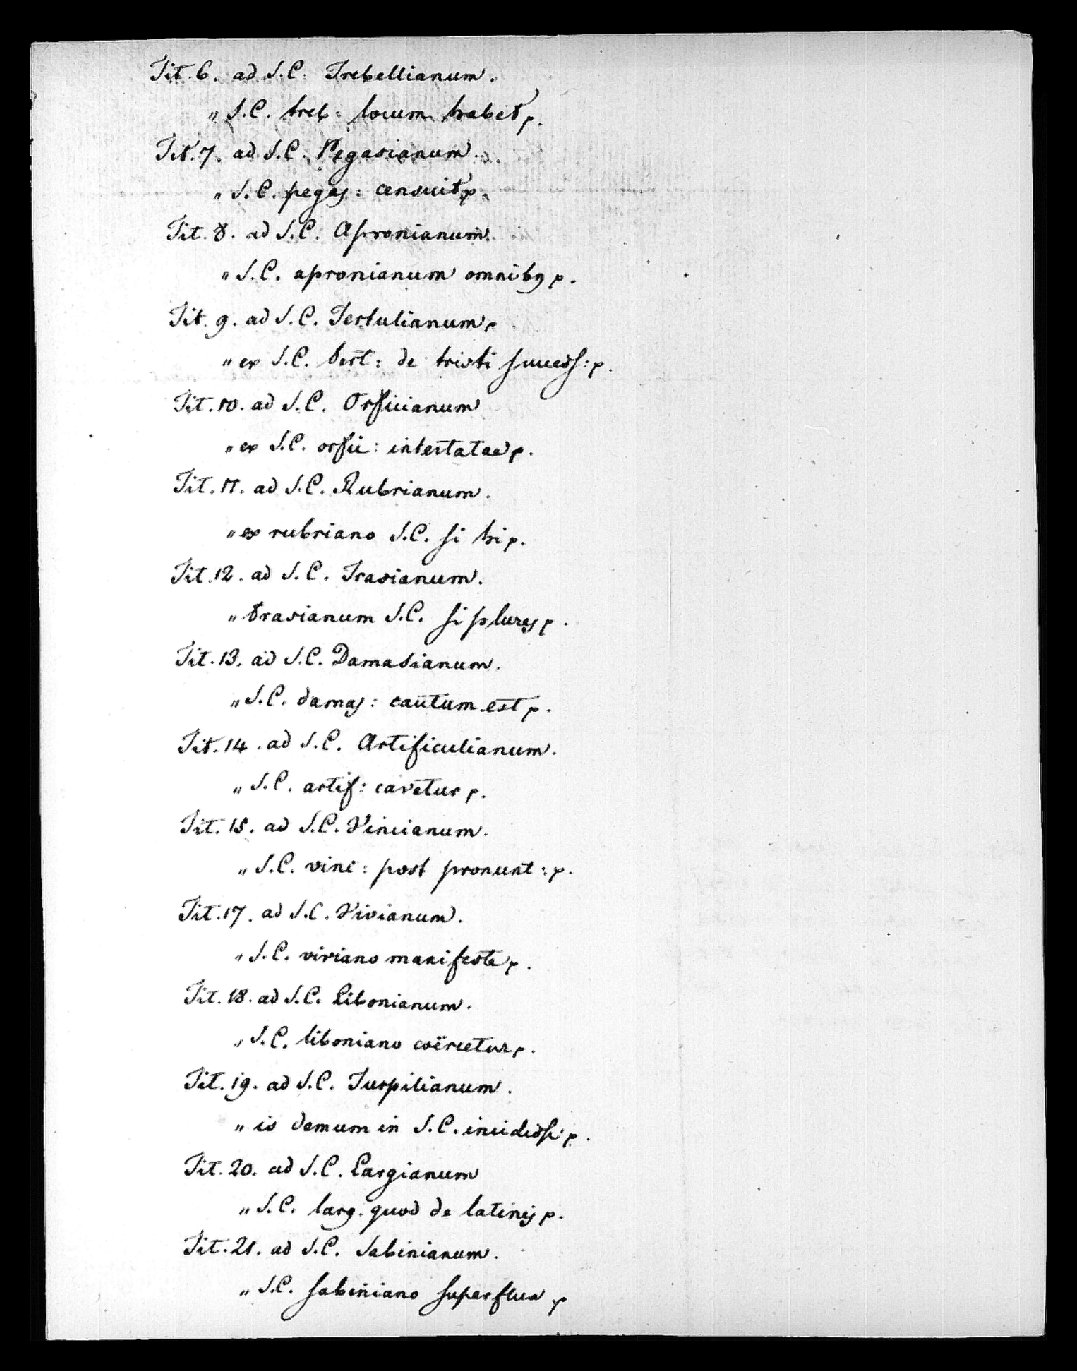 Tit. 6. ad S.C. Trebellianum.
„ S.C. treb: locum habet p.
Tit. 7. ad S.C. Pegasianum.
„ S.C. pegas: censuit p.
Tit. 8. ad S.C. Apronianum.
„ S.C. apronianum omnibq p.
Tit. 9. ad S.C. Tertulianum p
„ ex S.C. tert: de tristi p.
Tit. 10. ad S.C. Orficianum
„ ex S.C. orfic: intestatae p.
Tit. 11. ad S.C. Rubrianum.
„ ex rubriano S.C. si hi p.
Tit. 12. ad S.C. Trasianum.
„ trasianum S.C. si plures p.
Tit. 13. ad S.C. Damasianum.
„ S.C. damas: cautum est p.
Tit. 14. ad S.C. Artificulianum.
„ S.C. artif: cavetur p.
Tit. 15. ad S.C. Vincianum.
„ S.C. vinc: post pronunt: p.
Tit. 17. ad S.C. Vivianum.
„ S.C. viviano manifeste p.
Tit. 18. ad S.C. Libonianum.
„ S.C. liboniano coërcetur p.
Tit. 19. ad S.C. Turpilianum.
„ is demum in S.C. p.
Tit. 20. ad S.C. Largianum
„ S.C. larg. quod de latinis p.
Tit. 21. ad S.C. Sabinianum.
„ S.C. sabiniano superflua p